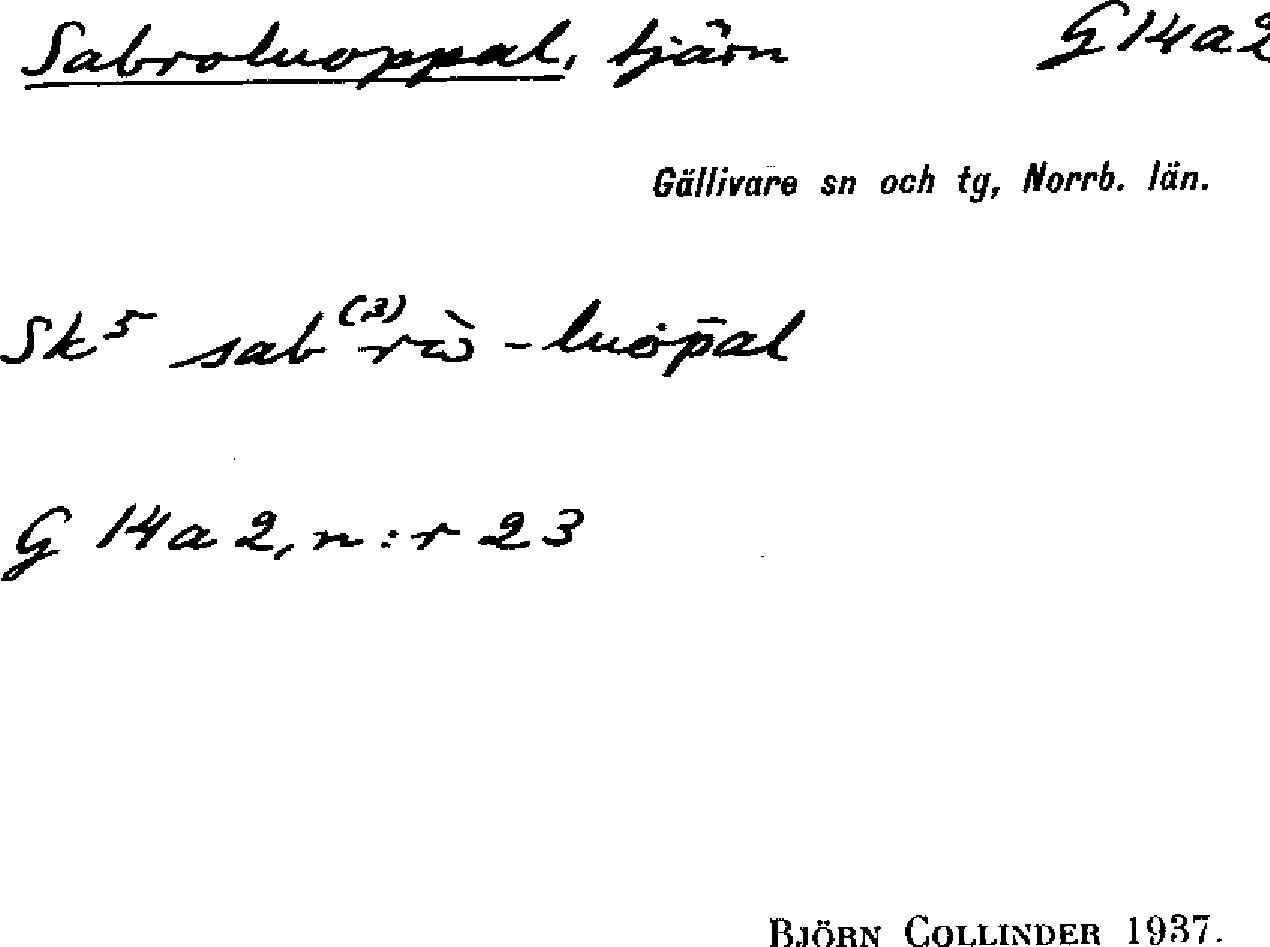 Sabroluoppal, tjärn G14a2
Gällivare sn och tg, Norrb. län.
Sk⁵ sab⁽³⁾rὼ - luȯp̄al
G 14a2, n:r 23
BJÖRN COLLINDER 1937.